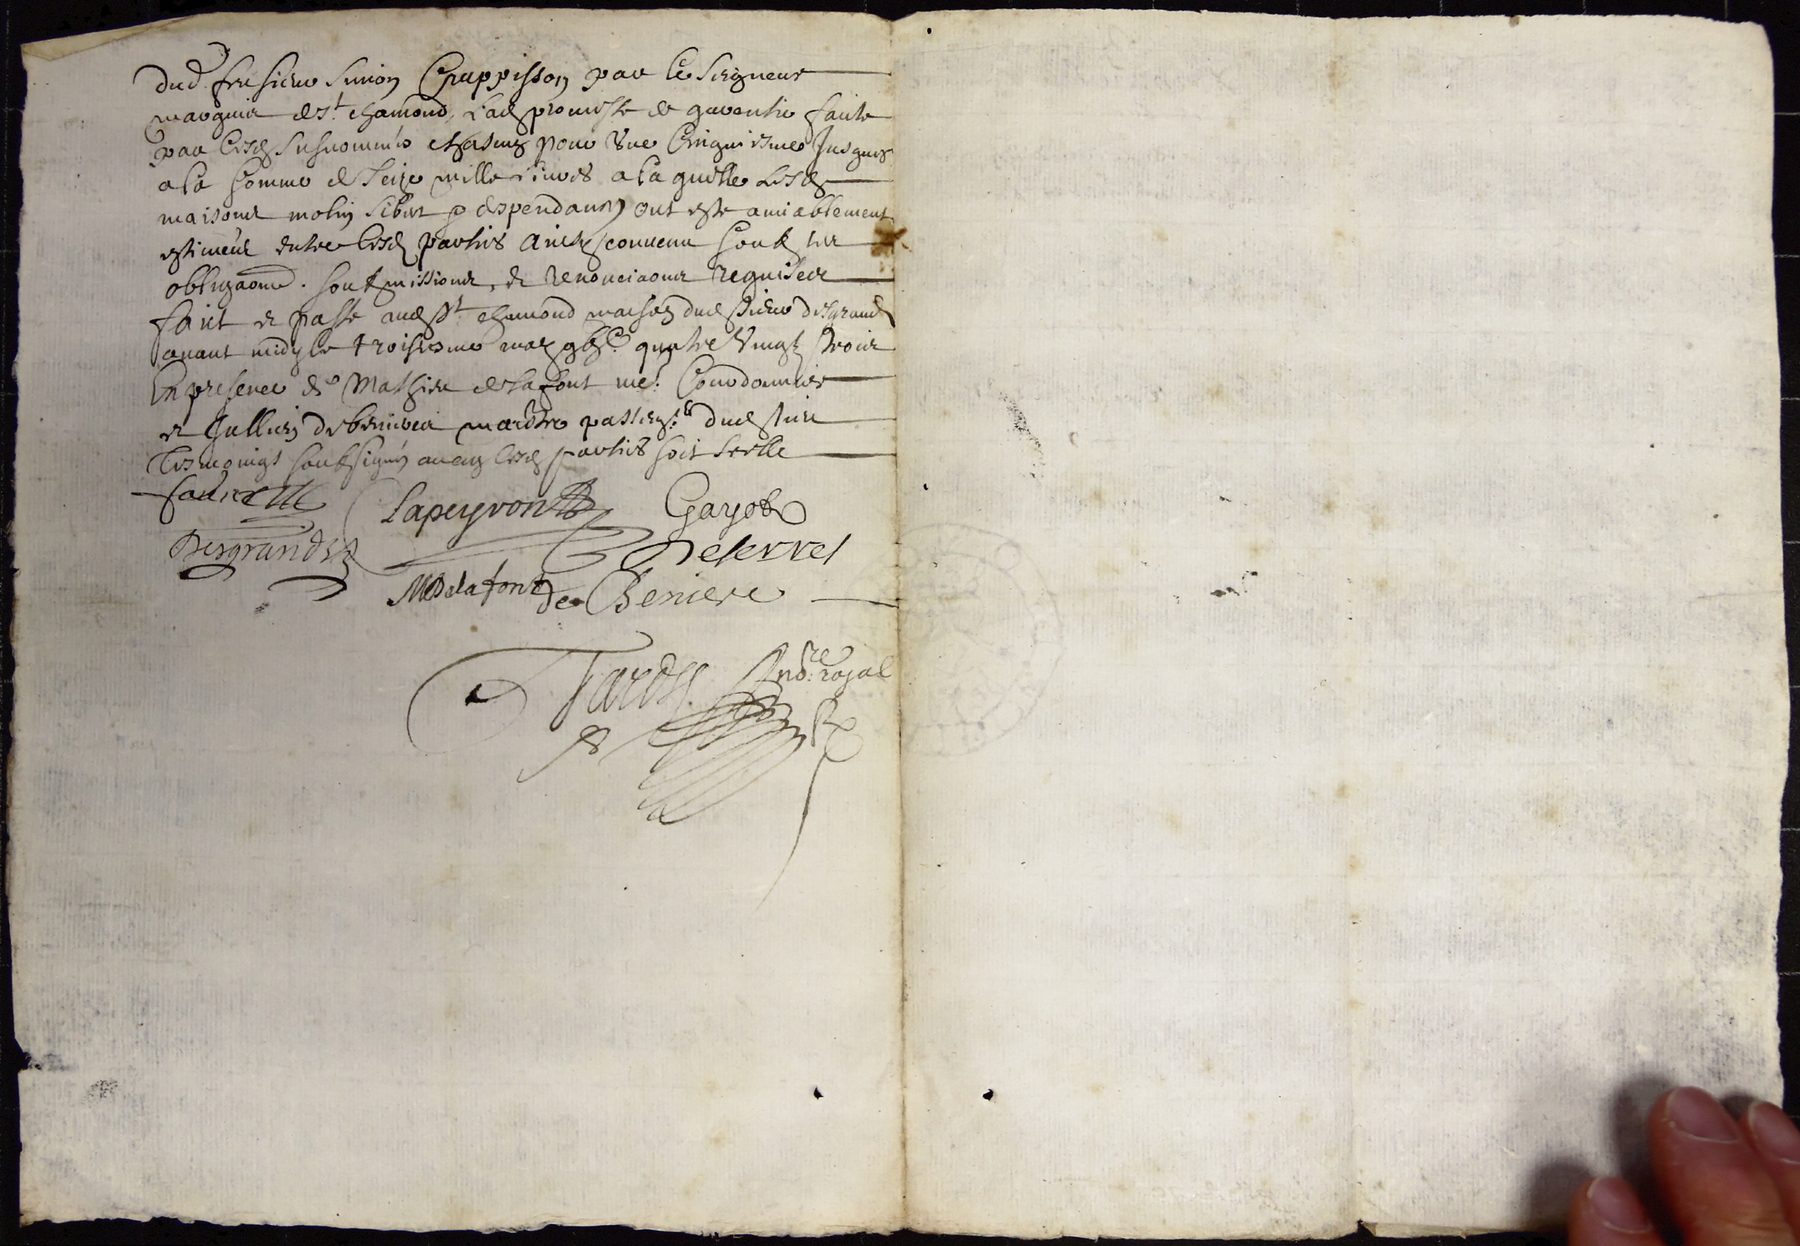 dud. feu sieur Simon Chappisson par le Seigneur
marquis de St. chamond, Lad promesse de garentie faicte
par lesd susnommés chascung pour une Cinquiesme Jusques
a la somme de Seize mille livres a laquelle lesd
maisons molin et despendances ont esté amiablement
estimées entre lesd parties Ainsy convenu soubz les
obligaons. soubzmissions, et renonciaons requises
faict et passé aud St. chamond maison dud sieur desgrands
avant midy le troisiesme quatre Vingtz Trois
En presence de Mathieu delafont me. Courdonnier
et Jullien debeniere maistre passem. dud lieu
Tesmoings soubsignés avecq lesd parties soit scellé
Lapeyronie Gayot
Desgrands Deserres
MDelafont de Beniere
Tardy nore. royal